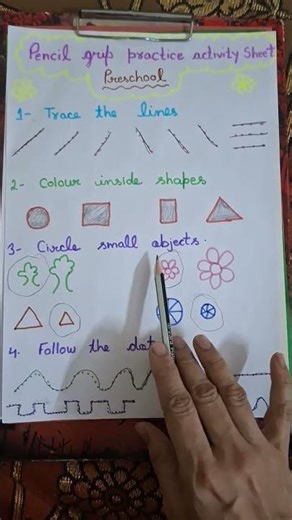 Pencil grip practice activity Sheet
Preschool
1- Trace the lines
2- Colour inside shapes
3- Circle small objects.
4. Follow the dot